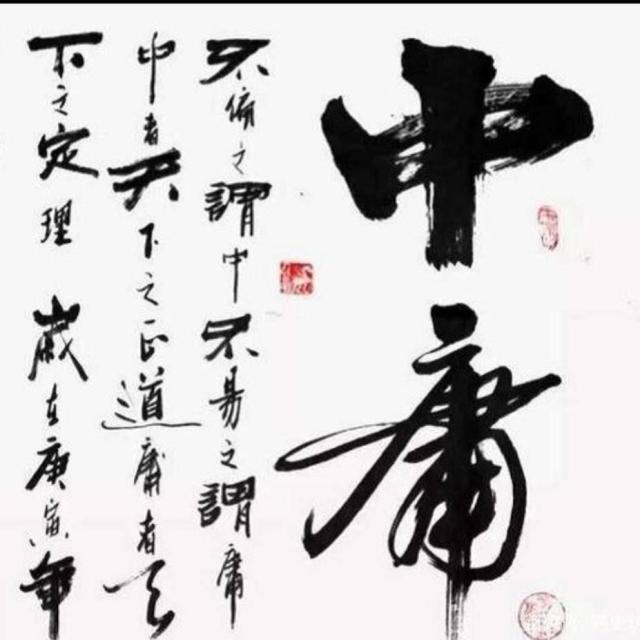 中庸
不偏之謂中不易之謂庸
中者天下之正道庸者天
下之定理 歲在庚寅年